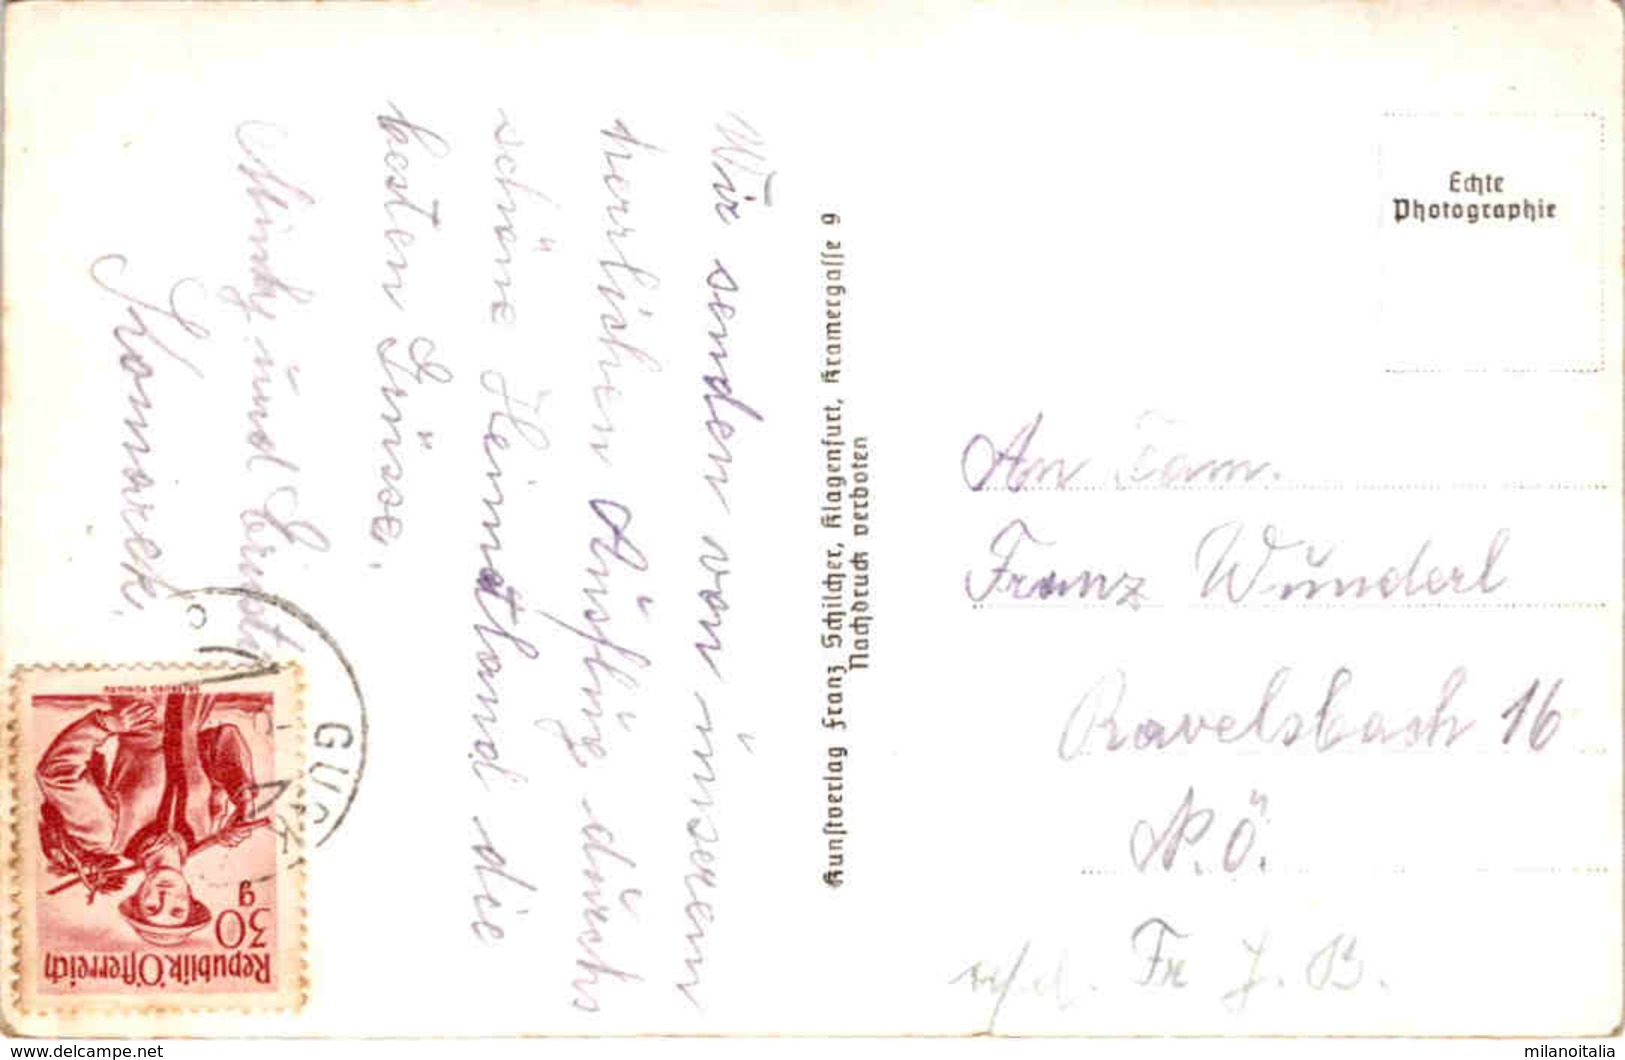 Wir senden von unserem
herrlichen Ausflug durchs
schöne Heimatland die
besten Grüsse.
und
Kunstverlag Franz Schilcher, Klagenfurt, Kramergasse 9
Nachdruck verboten
Echte
Photographie
An Fam.
Franz Wunderl
Ravelsbach 16
N.Ö.
Fr J. B.
GUR
SALZBURG PONGAU
30
g
Republik Österreich
www.delcampe.net
milanoitalia